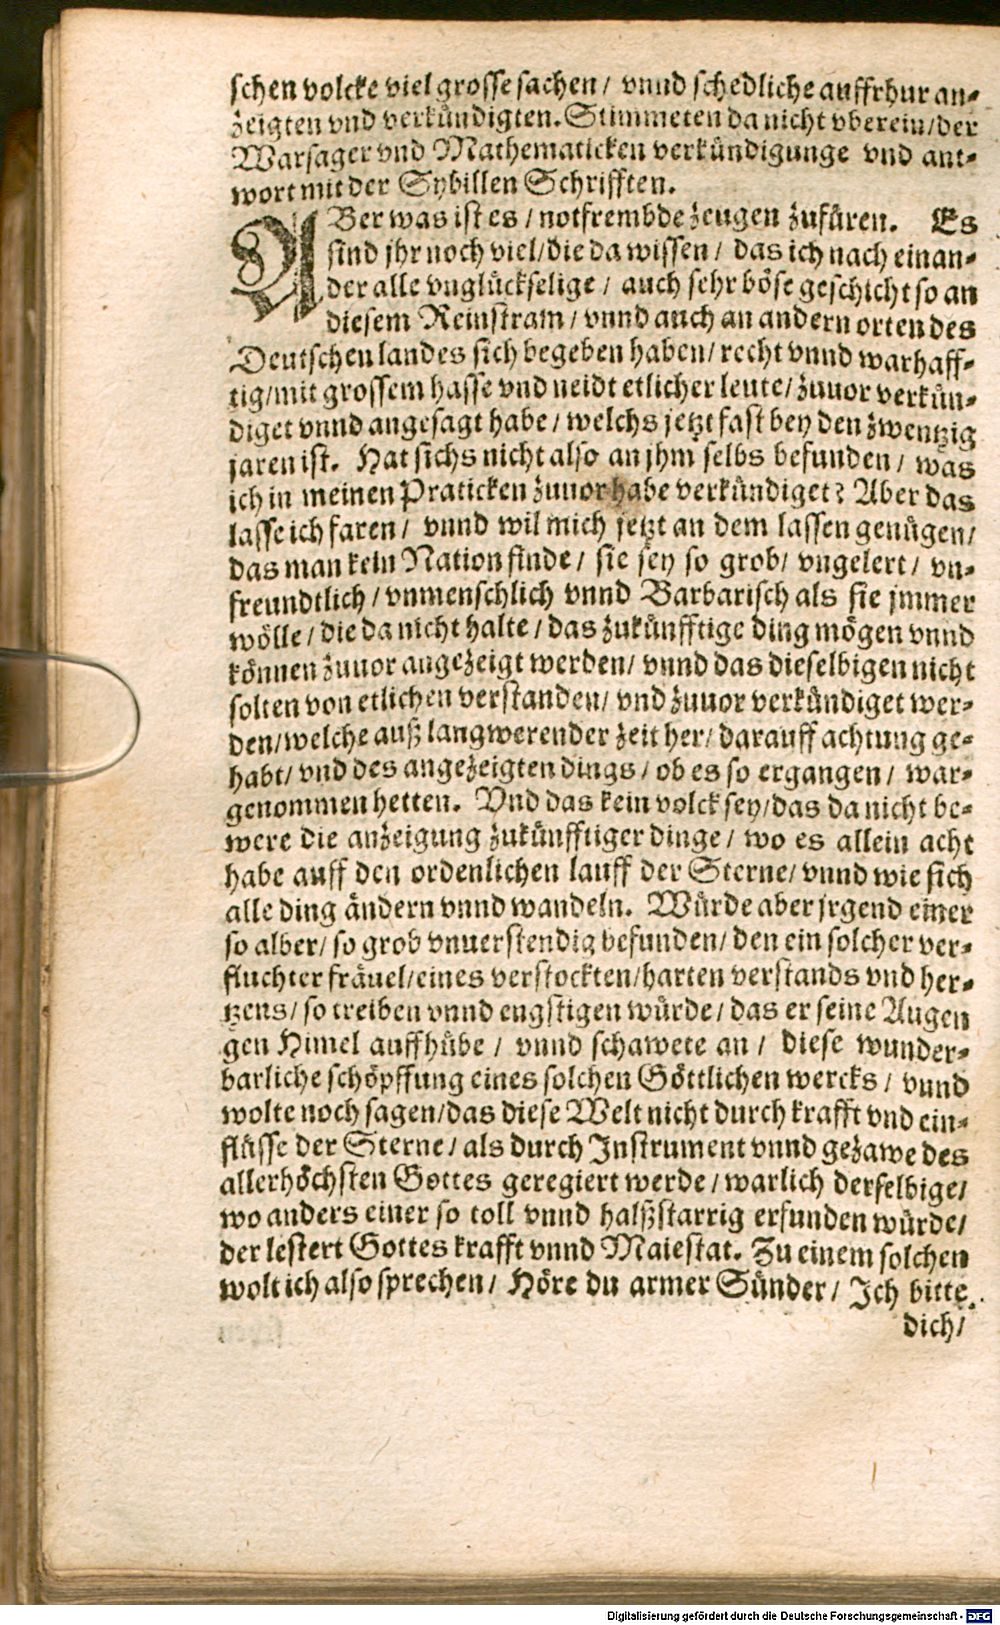 schen volcke viel grosse sachen / vnnd schedliche auffrhur an-
zeigten vnd verkündigten. Stimmeten da nicht vberein/der
Warsager vnd Mathematicken verkündigunge vnd ant-
wort mit der Sybillen Schrifften.
ABer was ist es / notfrembde zeugen zufüren. Es
sind jhr noch viel/die da wissen / das ich nach einan-
der alle vnglückselige / auch sehr böse geschicht so an
diesem Reinstram / vnnd auch an andern orten des
Deutschen landes sich begeben haben/ recht vnnd warhaff-
tig/mit grossem hasse vnd neidt etlicher leute/ zuuor verkün-
diget vnnd angesagt habe / welchs jetzt fast bey den zwentzig
jaren ist. Hat sichs nicht also an jhm selbs befunden / was
ich in meinen Praticken zuuor habe verkündiget? Aber das
lasse ich faren / vnnd wil mich jetzt an dem lassen genügen/
das man kein Nation finde / sie sey so grob/ vngelert / vn-
freundtlich / vnmenschlich vnnd Barbarisch als sie jmmer
wölle / die da nicht halte / das zukünfftige ding mögen vnnd
können zuuor angezeigt werden/ vnnd das dieselbigen nicht
solten von etlichen verstanden/ vnd zuuor verkündiget wer-
den/welche auß langwerender zeit her/ darauff achtung ge-
habt/ vnd des angezeigten dings / ob es so ergangen / war-
genommen hetten. Vnd das kein volck sey/das da nicht be-
were die anzeigung zukünfftiger dinge / wo es allein acht
habe auff den ordenlichen lauff der Sterne/ vnnd wie sich
alle ding ändern vnnd wandeln. Würde aber jrgend einer
so alber/ so grob vnuerstendig befunden/ den ein solcher ver-
fluchter fräuel/eines verstockten/harten verstands vnd her-
tzens/ so treiben vnnd engstigen würde/ das er seine Augen
gen Himel auffhübe / vnnd schawete an / diese wunder-
barliche schöpffung eines solchen Göttlichen wercks / vnnd
wolte noch sagen/das diese Welt nicht durch krafft vnd ein-
flüsse der Sterne / als durch Instrument vnnd gezawe des
allerhöchsten Gottes geregiert werde / warlich derselbige/
wo anders einer so toll vnnd halßstarrig erfunden würde/
der lestert Gottes krafft vnnd Maiestat. Zu einem solchen
wolt ich also sprechen / Höre du armer Sünder / Ich bitte
dich/
Digitalisierung gefördert durch die Deutsche Forschungsgemeinschaft - DFG